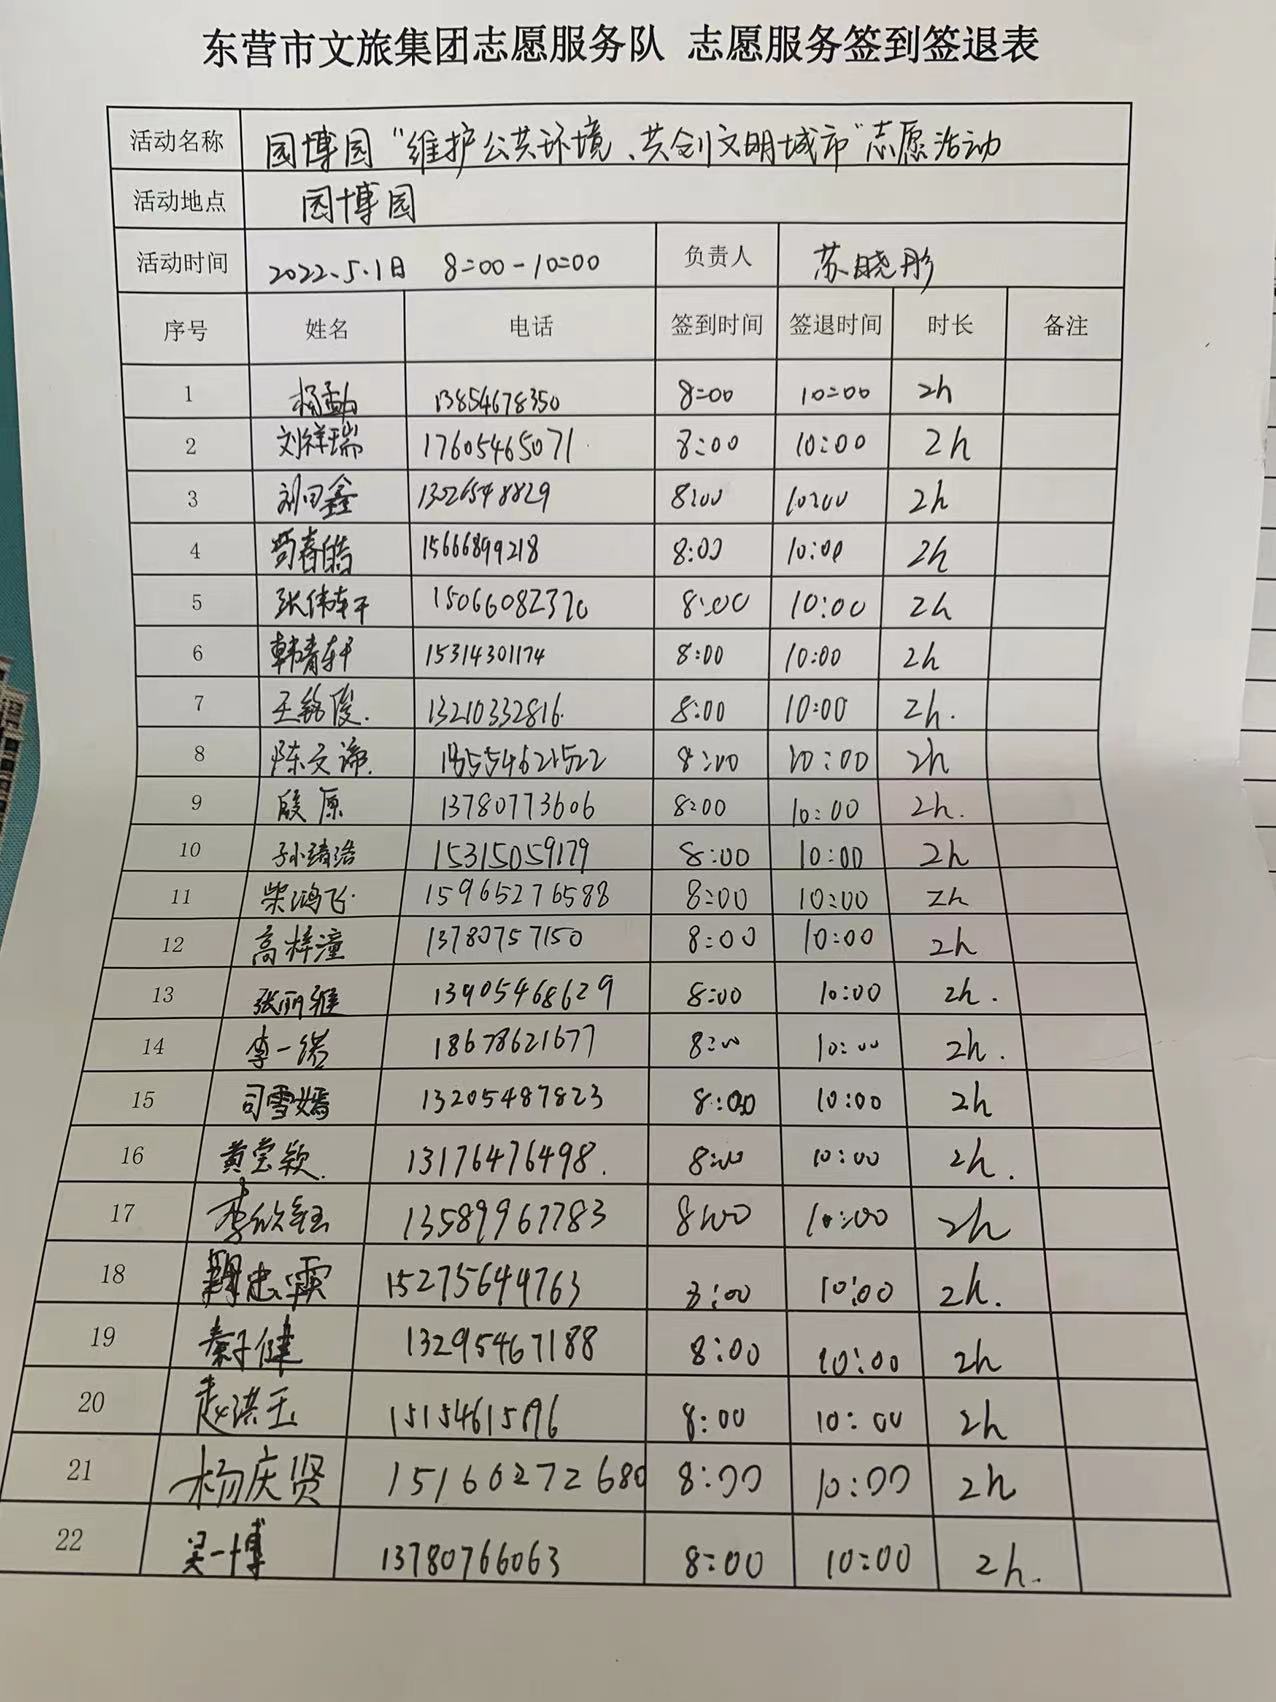 东营市文旅集团志愿服务队 志愿服务签到签退表
活动名称 园博园“维护公共环境、共创文明城市”志愿活动
活动地点 园博园
活动时间 2022.5.1日 8:00-10:00 负责人 苏晓彤
序号 姓名 电话 签到时间 签退时间 时长 备注
1 13854678350 8:00 10:00 2h
2 刘祥瑞 17605465071 8:00 10:00 2h
3 刘田鑫 8:00 10:00 2h
4 苟春皓 15666899218 8:00 10:00 2h
5 15066082370 8:00 10:00 2h
6 韩青轩 15314301174 8:00 10:00 2h
7 王铭俊. 13210332816. 8:00 10:00 2h.
8 陈文谛. 18554621522 8:00 10:00 2h
9 殷原 13780773606 8:00 10:00 2h.
10 孙靖浩 15315059179 8:00 10:00 2h
11 柴鸿飞 15965276588 8:00 10:00 2h
12 高梓潼 13780757150 8:00 10:00 2h
13 张丽雅 13905468629 8:00 10:00 2h.
14 李一诺 18678621677 8:00 10:00 2h.
15 司雪嫣 13205487823 8:00 10:00 2h
16 黄莹颖. 13176476498. 8:00 10:00 2h.
17 李欣钰 13589967783 8:00 10:00 2h
18 15275644763 8:00 10:00 2h.
19 秦子健 13295467188 8:00 10:00 2h
20 赵洪玉 8:00 10:00 2h
21 杨庆贤 15160272680 8:00 10:00 2h
22 吴一博 13780766063 8:00 10:00 2h.